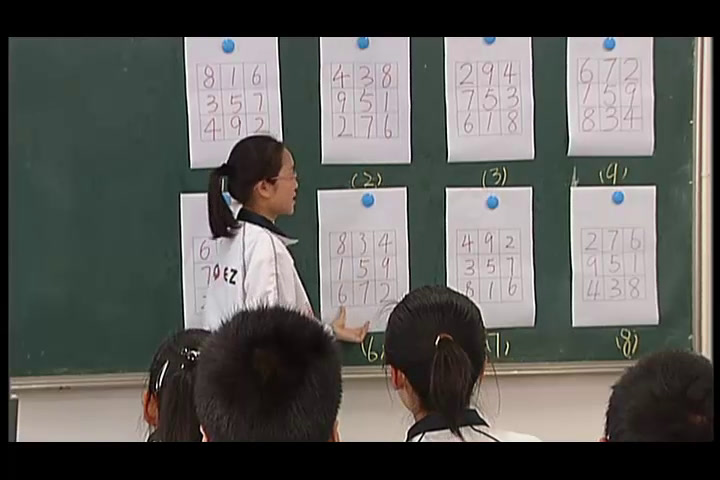 8 1 6
3 5 7
4 9 2
4 3 8
9 5 1
2 7 6
(2)
2 9 4
7 5 3
6 1 8
(3)
6 7 2
1 5 9
8 3 4
(4)
6
7
8 3 4
1 5 9
6 7 2
(6
4 9 2
3 5 7
8 1 6
7)
2 7 6
9 5 1
4 3 8
(8)
EZ